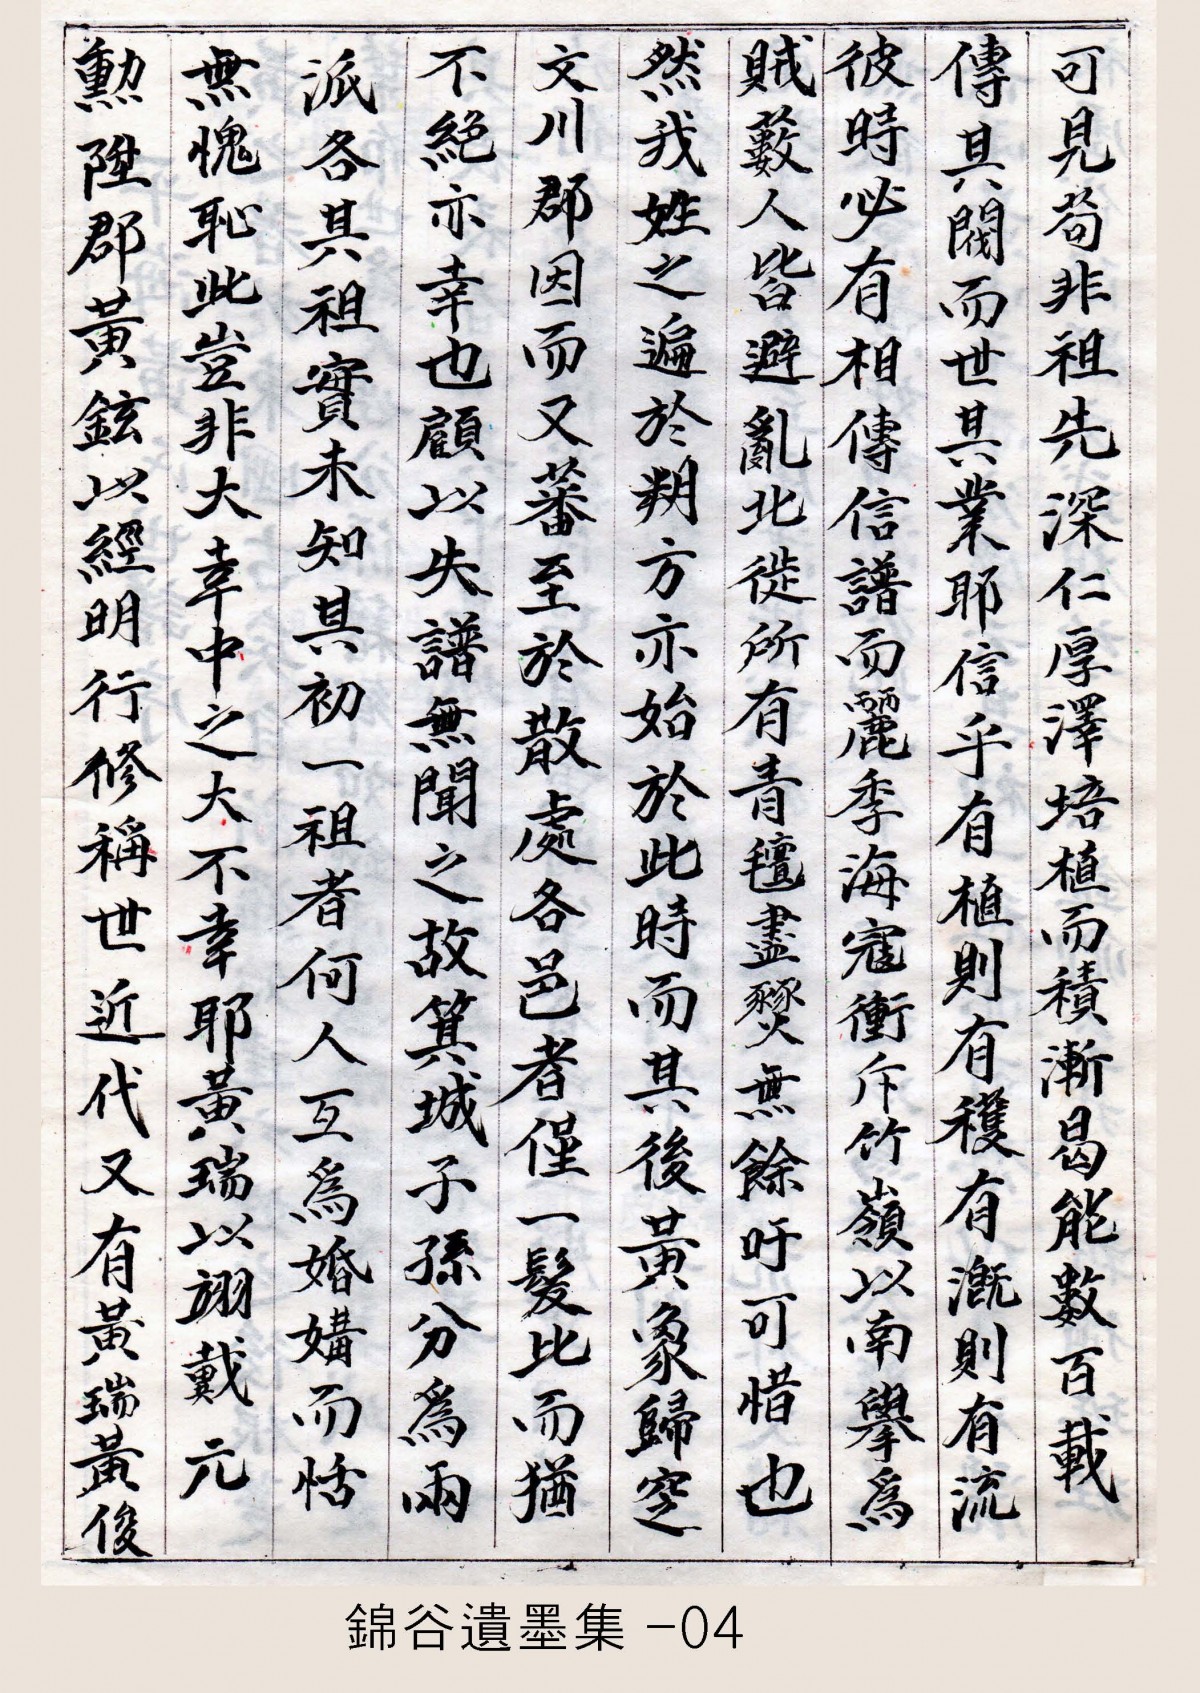 可見苟非祖先深仁厚澤培植而積漸曷能數百載
傳其閥而世其業耶信乎有植則有穫有漑則有流
彼時必有相傳信譜而麗季海寇衝斥竹嶺以南擧爲
賊藪人皆避亂北徙所有青氊盡燹無餘吁可惜也
然我姓之遍於朔方亦始於此時而其後黃象歸窆
文川郡因而又蕃至於散處各邑者僅一髮比而猶
不絕亦幸也顧以失譜無聞之故箕城子孫分爲兩
派各其祖實未知其初一祖者何人互爲婚媾而恬
無愧恥此豈非大幸中之大不幸耶黃瑞以翊戴元
勳陞郡黃鉉以經明行修稱世近代又有黃瑞黃俊
錦谷遺墨集 -04